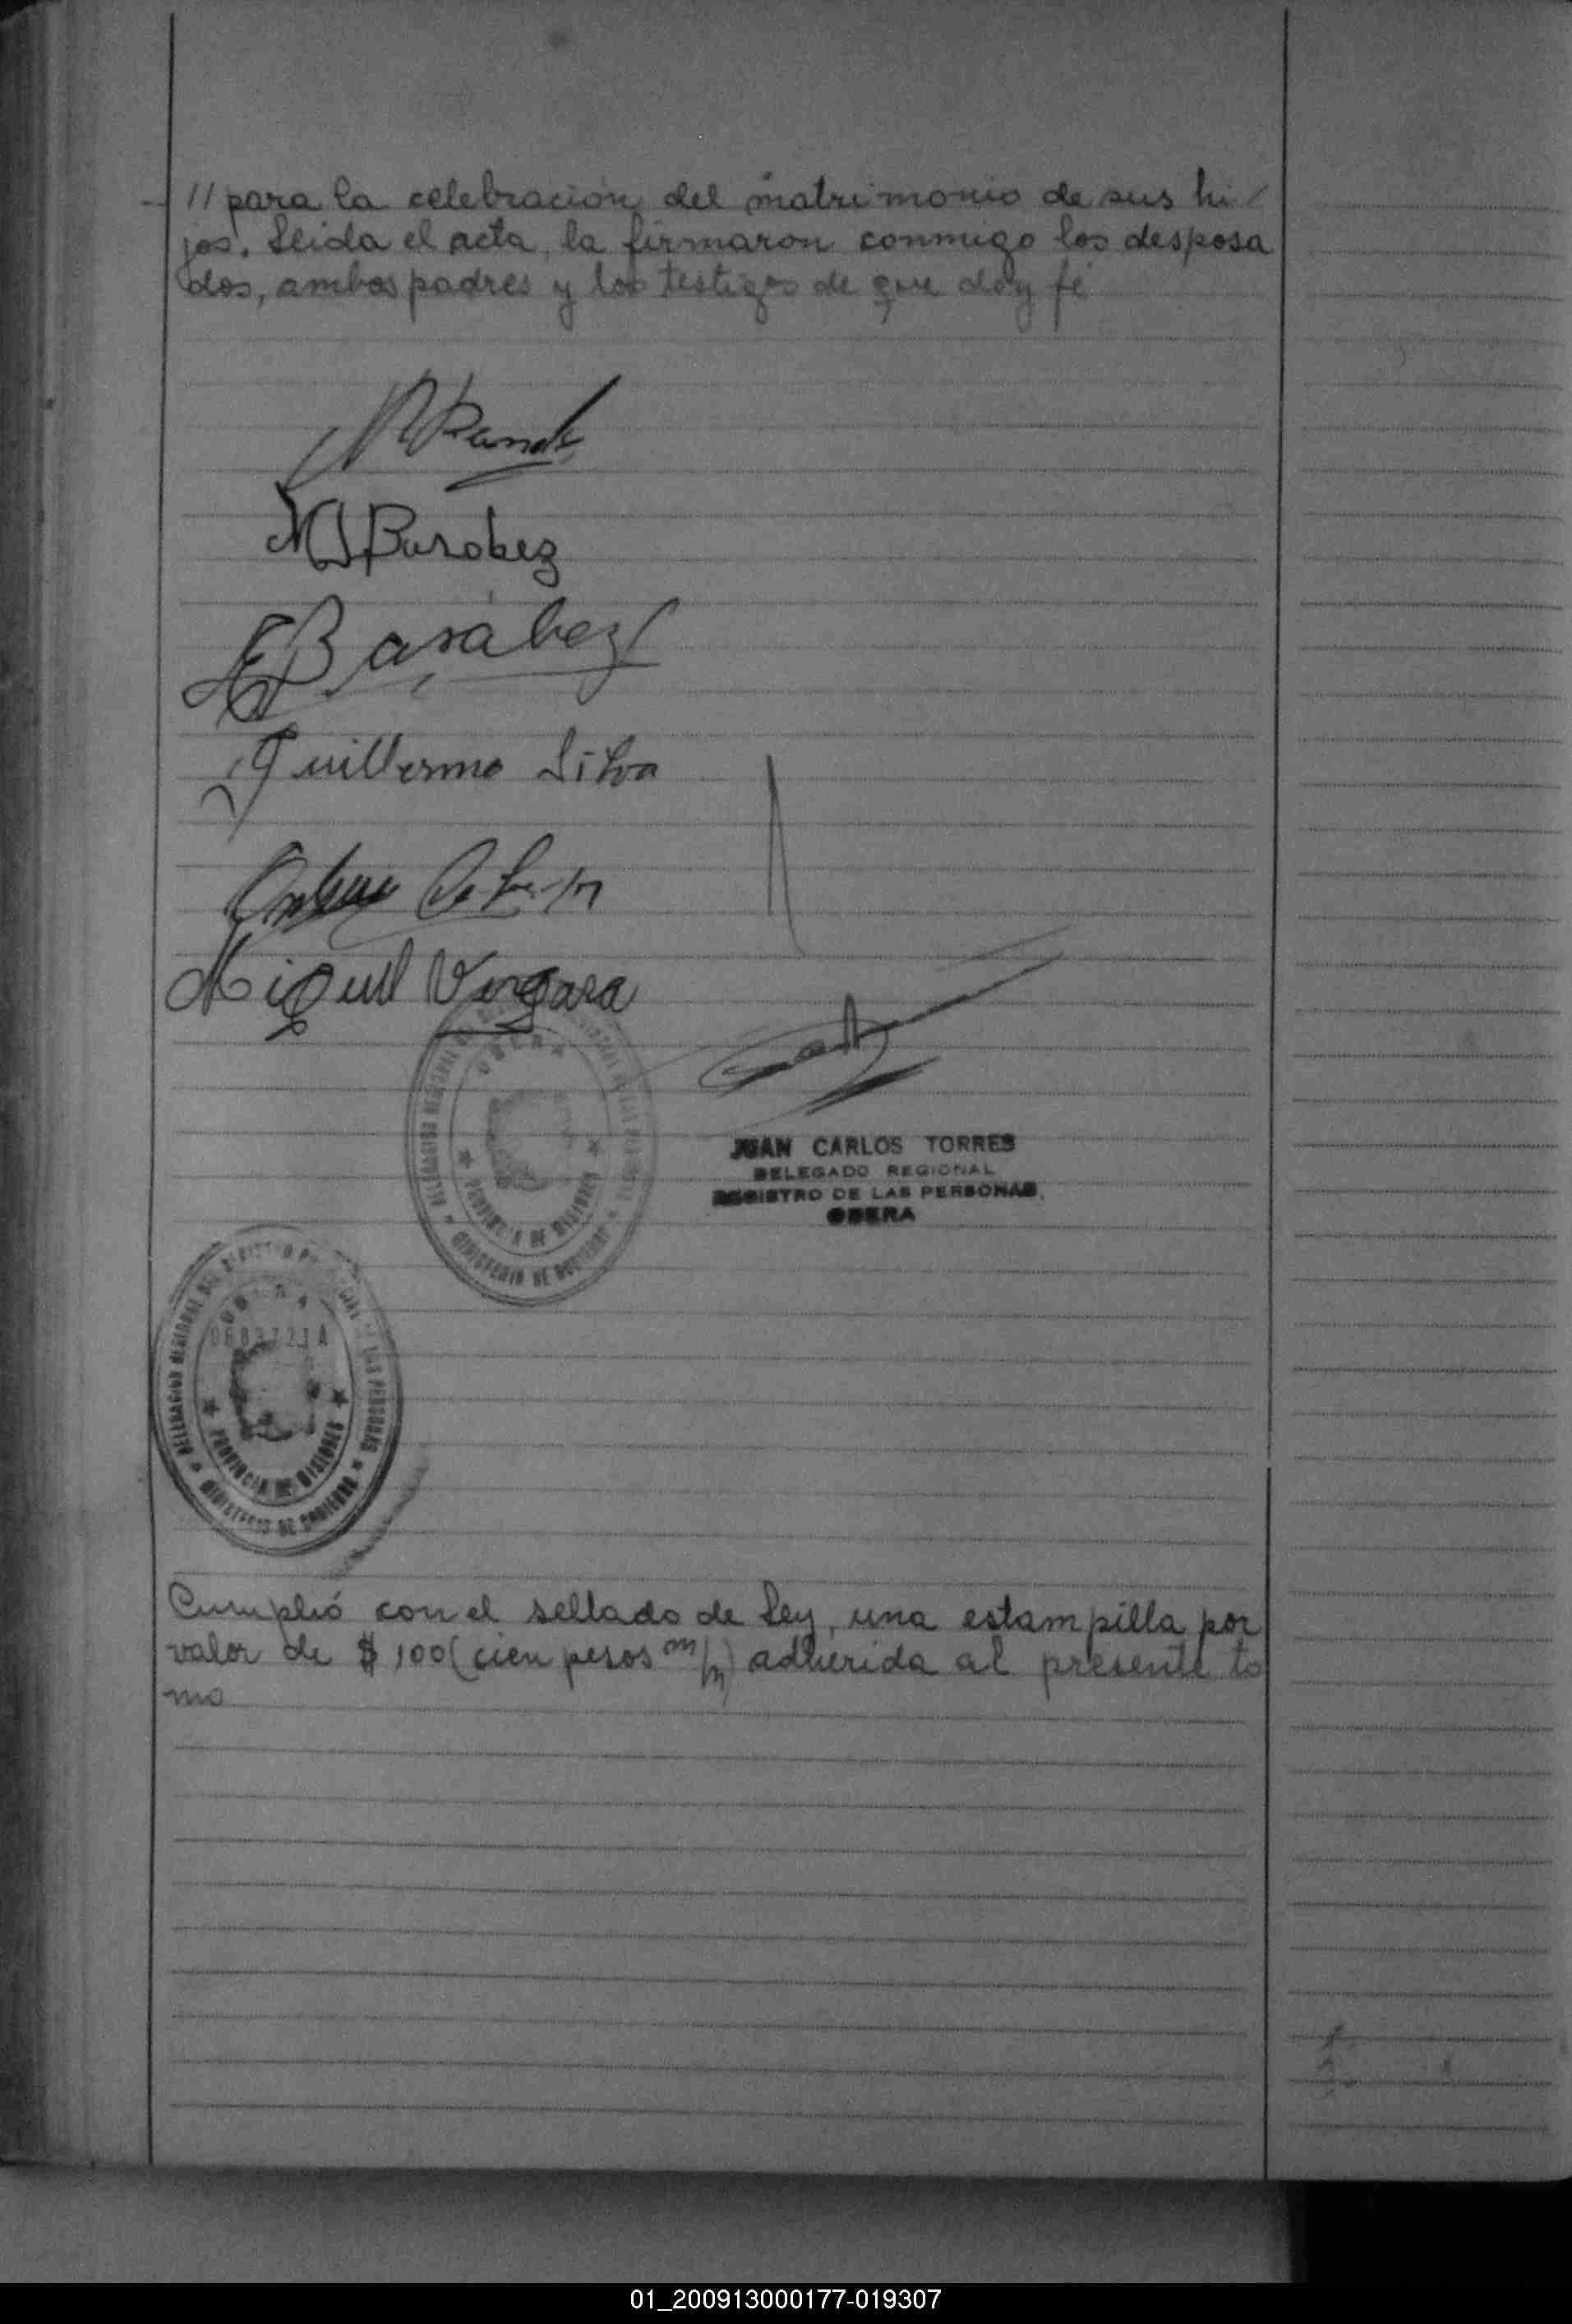 // para la celebración del matrimonio de sus hi/
jos. Leida el acta, la firmaron conmigo los desposa
dos, ambos padres y los testigos de que doy fé
Guillermo Silva
Miguel Vergara
OBERA
DELEGACION REGIONAL
PROVINCIA DE MISIONES
MINISTERIO DE GOBIERNO
JUAN CARLOS TORRES
DELEGADO REGIONAL
REGISTRO DE LAS PERSONAS
OBERA
DELEGACION REGIONAL DEL REGISTRO PROVINCIAL DE LAS PERSONAS
OBERA
PROVINCIA DE MISIONES
MINISTERIO DE GOBIERNO
Cumplió con el sellado de Ley, una estampilla por
valor de $ 100 (cien pesos m/n) adherida al presente to
mo
01_200913000177-019307